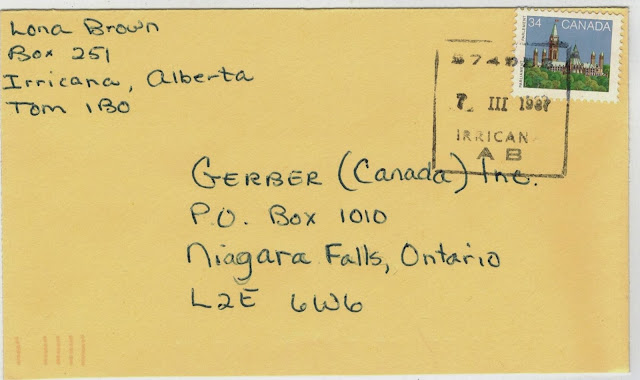 Lona Brown
Box 251
Irricana, Alberta
T0M 1B0
34 CANADA
7 III 1987
IRRICAN
AB
GERBER (Canada) Inc.
P.O. Box 1010
Niagara Falls, Ontario
L2E 6W6